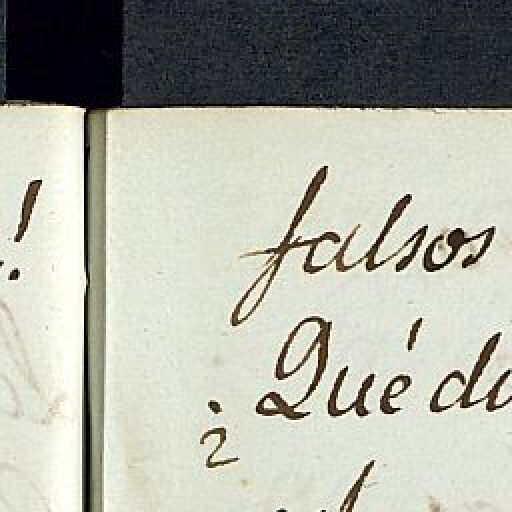 !
falsos
¿Qué du